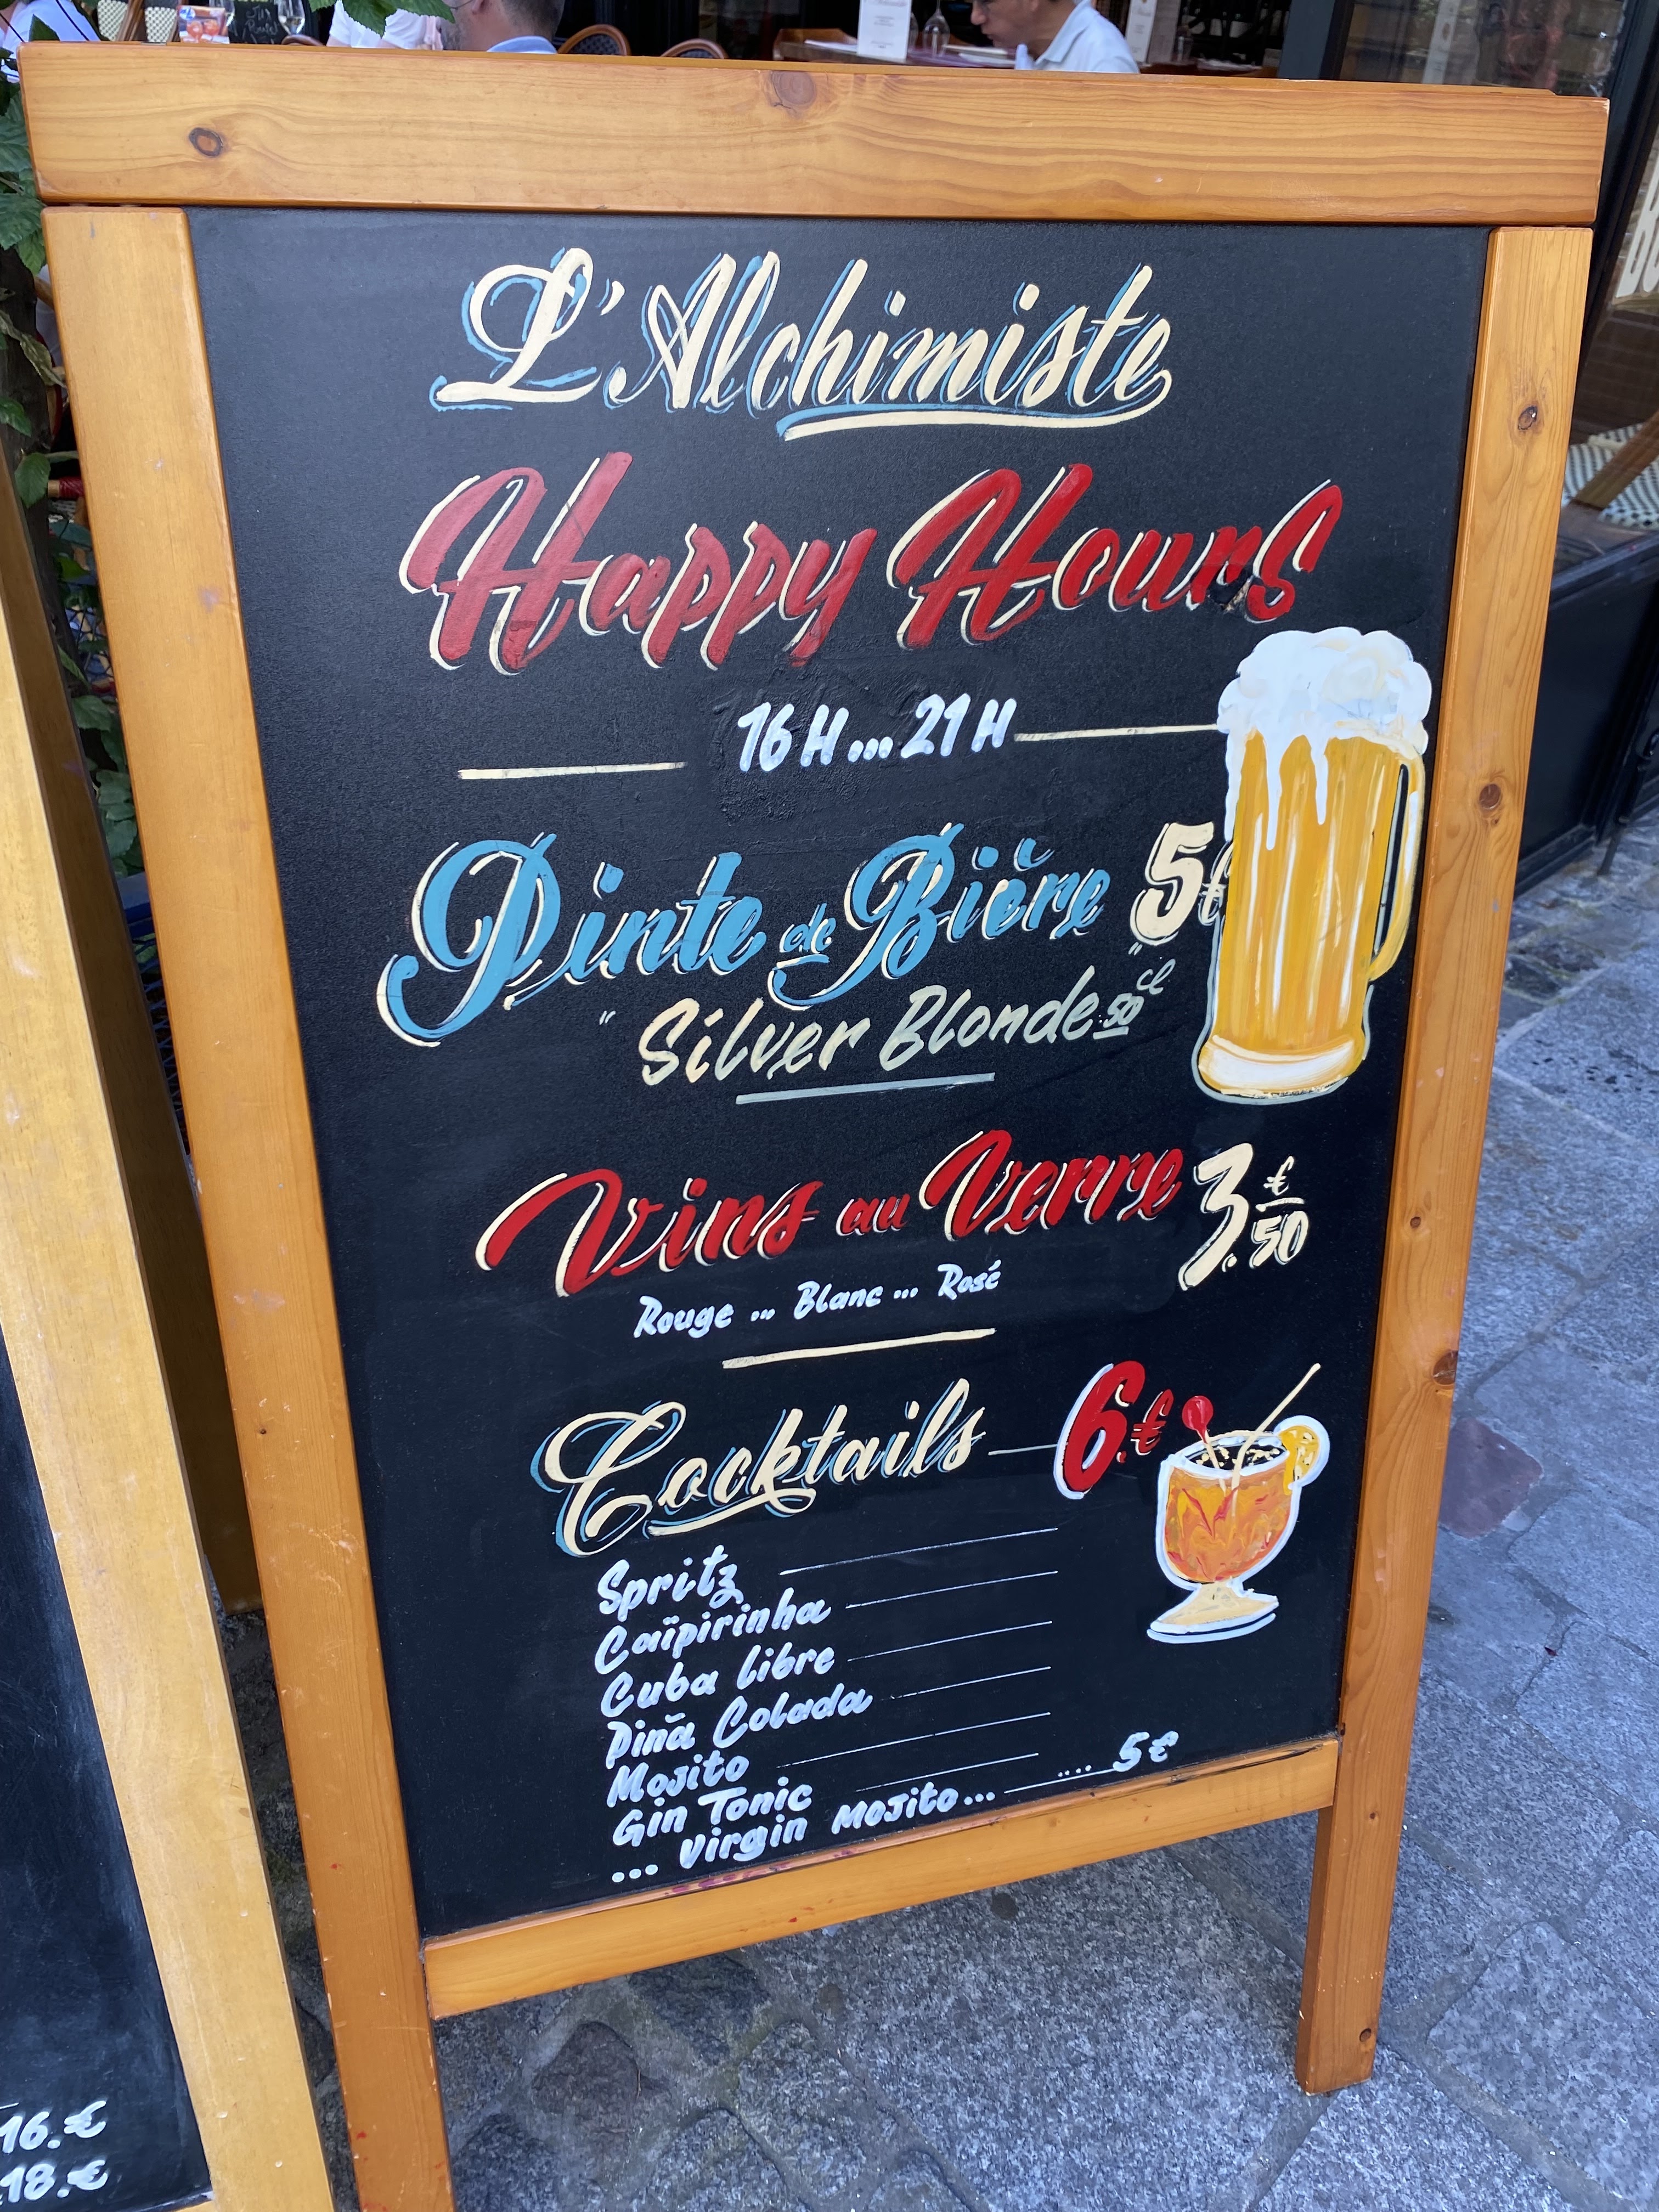 L'Alchimiste
Happy Hours
16H...21H
Pinte de Bière 5€
"Silver Blonde" 50 cl
Vins au Verre 3.€50
Rouge ... Blanc ... Rosé
Cocktails 6.€
Spritz
Caïpirinha
Cuba libre
Pinã Colada
Mojito
Gin Tonic
... Virgin Mojito... .... 5€
16.€
18.€